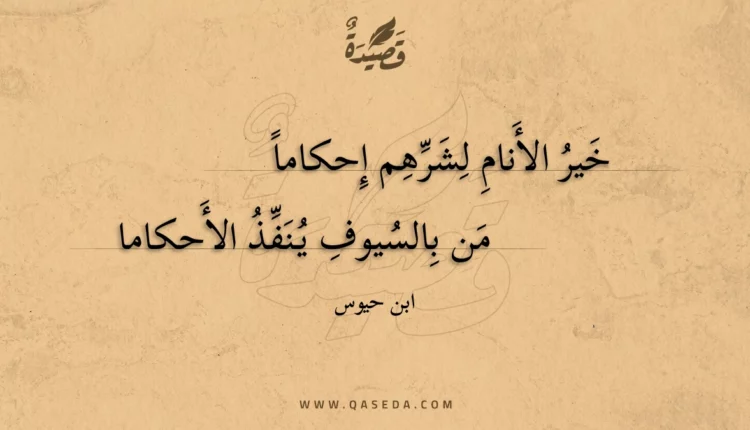 قَصِيْدَةٌ
خَيرُ الأَنامِ لِشَرِّهِم إِحكاماً
مَن بِالسُيوفِ يُنَفِّذُ الأَحكاما
ابن حيوس
WWW.QASEDA.COM